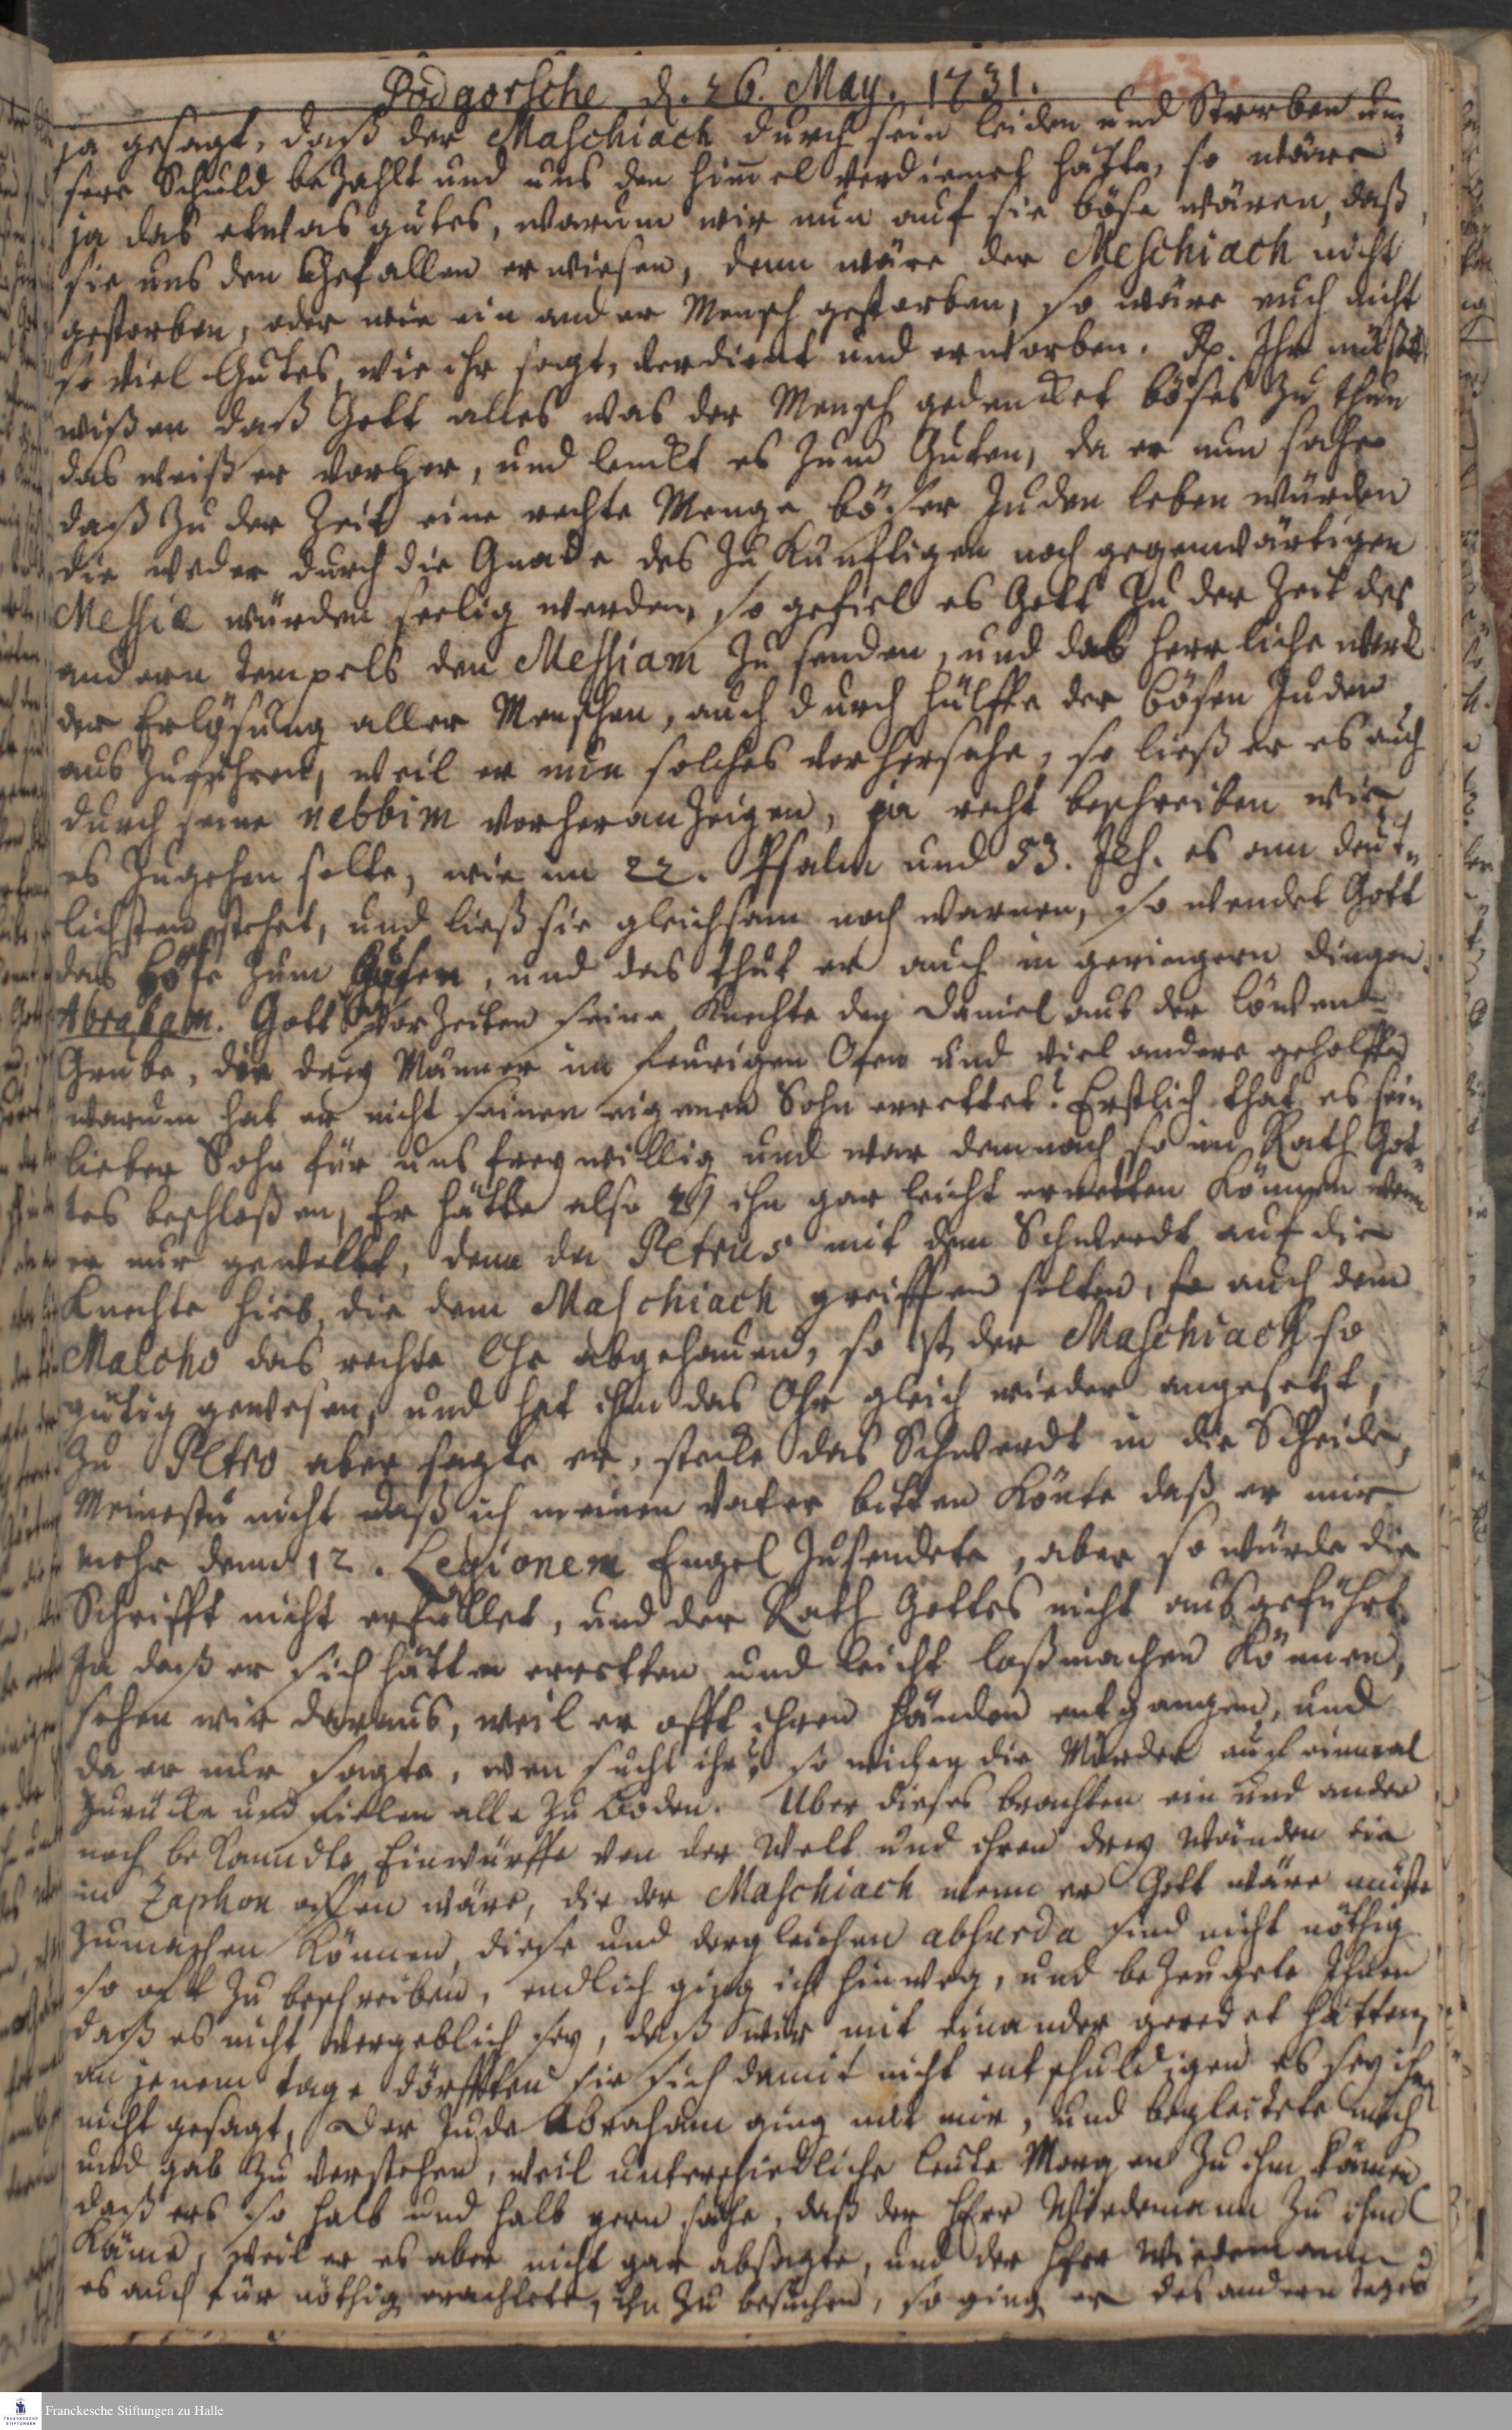 Podgorsche d. 26. May. 1731.
43.
ja gesagt, daß der Maschiach durch sein leiden und Sterben un-
sere Schuld bezahlt und uns den himmel verdienet hätte, so wäre
ja das etwas gutes, warum wir nun auf sie böse wären, daß
sie uns den Gefallen erwiesen, denn wäre der Meschiach nicht
gestorben, oder wie ein ander Mensch gestorben, so wäre euch nicht
so viel Gutes, wie ihr sagt, verdient und erworben. Rp. Ihr müßet
wißen daß Gott alles was der Mensch gedencket böses zu thun
das weiß er vorher, und lenckt es zum Guten, da er nun sahe
daß zu der Zeit eine rechte Menge böser Juden leben würden
die weder durch die Gnade des zukünftigen noch gegenwärtigen
Messiæ würden seelig werden, so gefiel es Gott zu der Zeit des
andern tempels den Messiam zu senden, und das herrliche werck
der Erlösung aller Menschen, auch durch hülffe der bösen Juden,
auszuführen, weil er nun solches vorhersahe, so ließ er es auch
durch seine nebbim vorher anzeigen, ja recht beschreiben wie
es zugehen solte, wie im 22. Psalm und 53. Jes. es am deut-
lichsten stehet, und ließ sie gleichsam noch warnen, so wendet Gott
das böse zum Guten, und das thut er auch in geringern dingen.
Abraham. Gott vor Zeiten seine Knechte den Daniel aus der löwen-
Grube, die drey Männer im feurigen Ofen und viel andere geholffen
warum hat er nicht seinen eigenen Sohn errettet? Erstlich that es sein
lieber Sohn für uns freywillig und war demnach so im Rath Got-
tes beschloßen, Er hätte also 2) ihn gar leicht erretten können wenn
er nur gewollt, denn da Petrus mit dem Schwerdt auf die
Knechte hieb, die dem Maschiach greiffen solten, so auch dem
Malcho das rechte Ohr abgehauen, so ist der Maschiach so
gütig gewesen, und hat ihm das Ohr gleich wieder angesetzt,
zu Petro aber sagte er, stecke das Schwerdt in die Scheide,
Meinestu nicht daß ich meinen vater bitten könte daß er mir
mehr denn 12. Legionem Engel zusendete, aber so würde die
Schrifft nicht erfüllet, und der Rath Gottes nicht ausgeführt
Ja daß er sich hätte erretten und leicht loßmachen können,
sehen wir daraus, weil er offt ihren händen entgangen, und
da er nur sagte, wen sucht ihr? so wichen die Mörder auch einmal
zurücke und fielen alle zu boden. Uber dieses brachten ein und ander
noch bekanndte Einwürffe von der Welt und ihren drey Wänden die
in Zaphon offen wäre, die der Maschiach wenn er Gott wäre müste
zumachen können, diese und dergleichen absurda sind nicht nöthig
so offt zu beschreiben, endlich ging ich hinweg, und bezeugete Ihnen
daß es nicht vergeblich sey, daß wir mit einander geredet hätten,
an jenem tage dörfften sie sich damit nicht entschuldigen es sey ihn
nicht gesagt, Der Jude Abraham ging mit mir, und begleitete mich
und gab zu verstehen, weil unterschiedliche leute Morgen zu ihm kämen
daß ers so halb und halb gern sähe, daß der Herr Wiedemann zu ihm
käme, weil er es aber nicht gar absagte, und der Herr Wiedemann
es auch für nöthig erachtete, ihn zu besuchen, so ging er des andern tages
Franckesche Stiftungen zu Halle